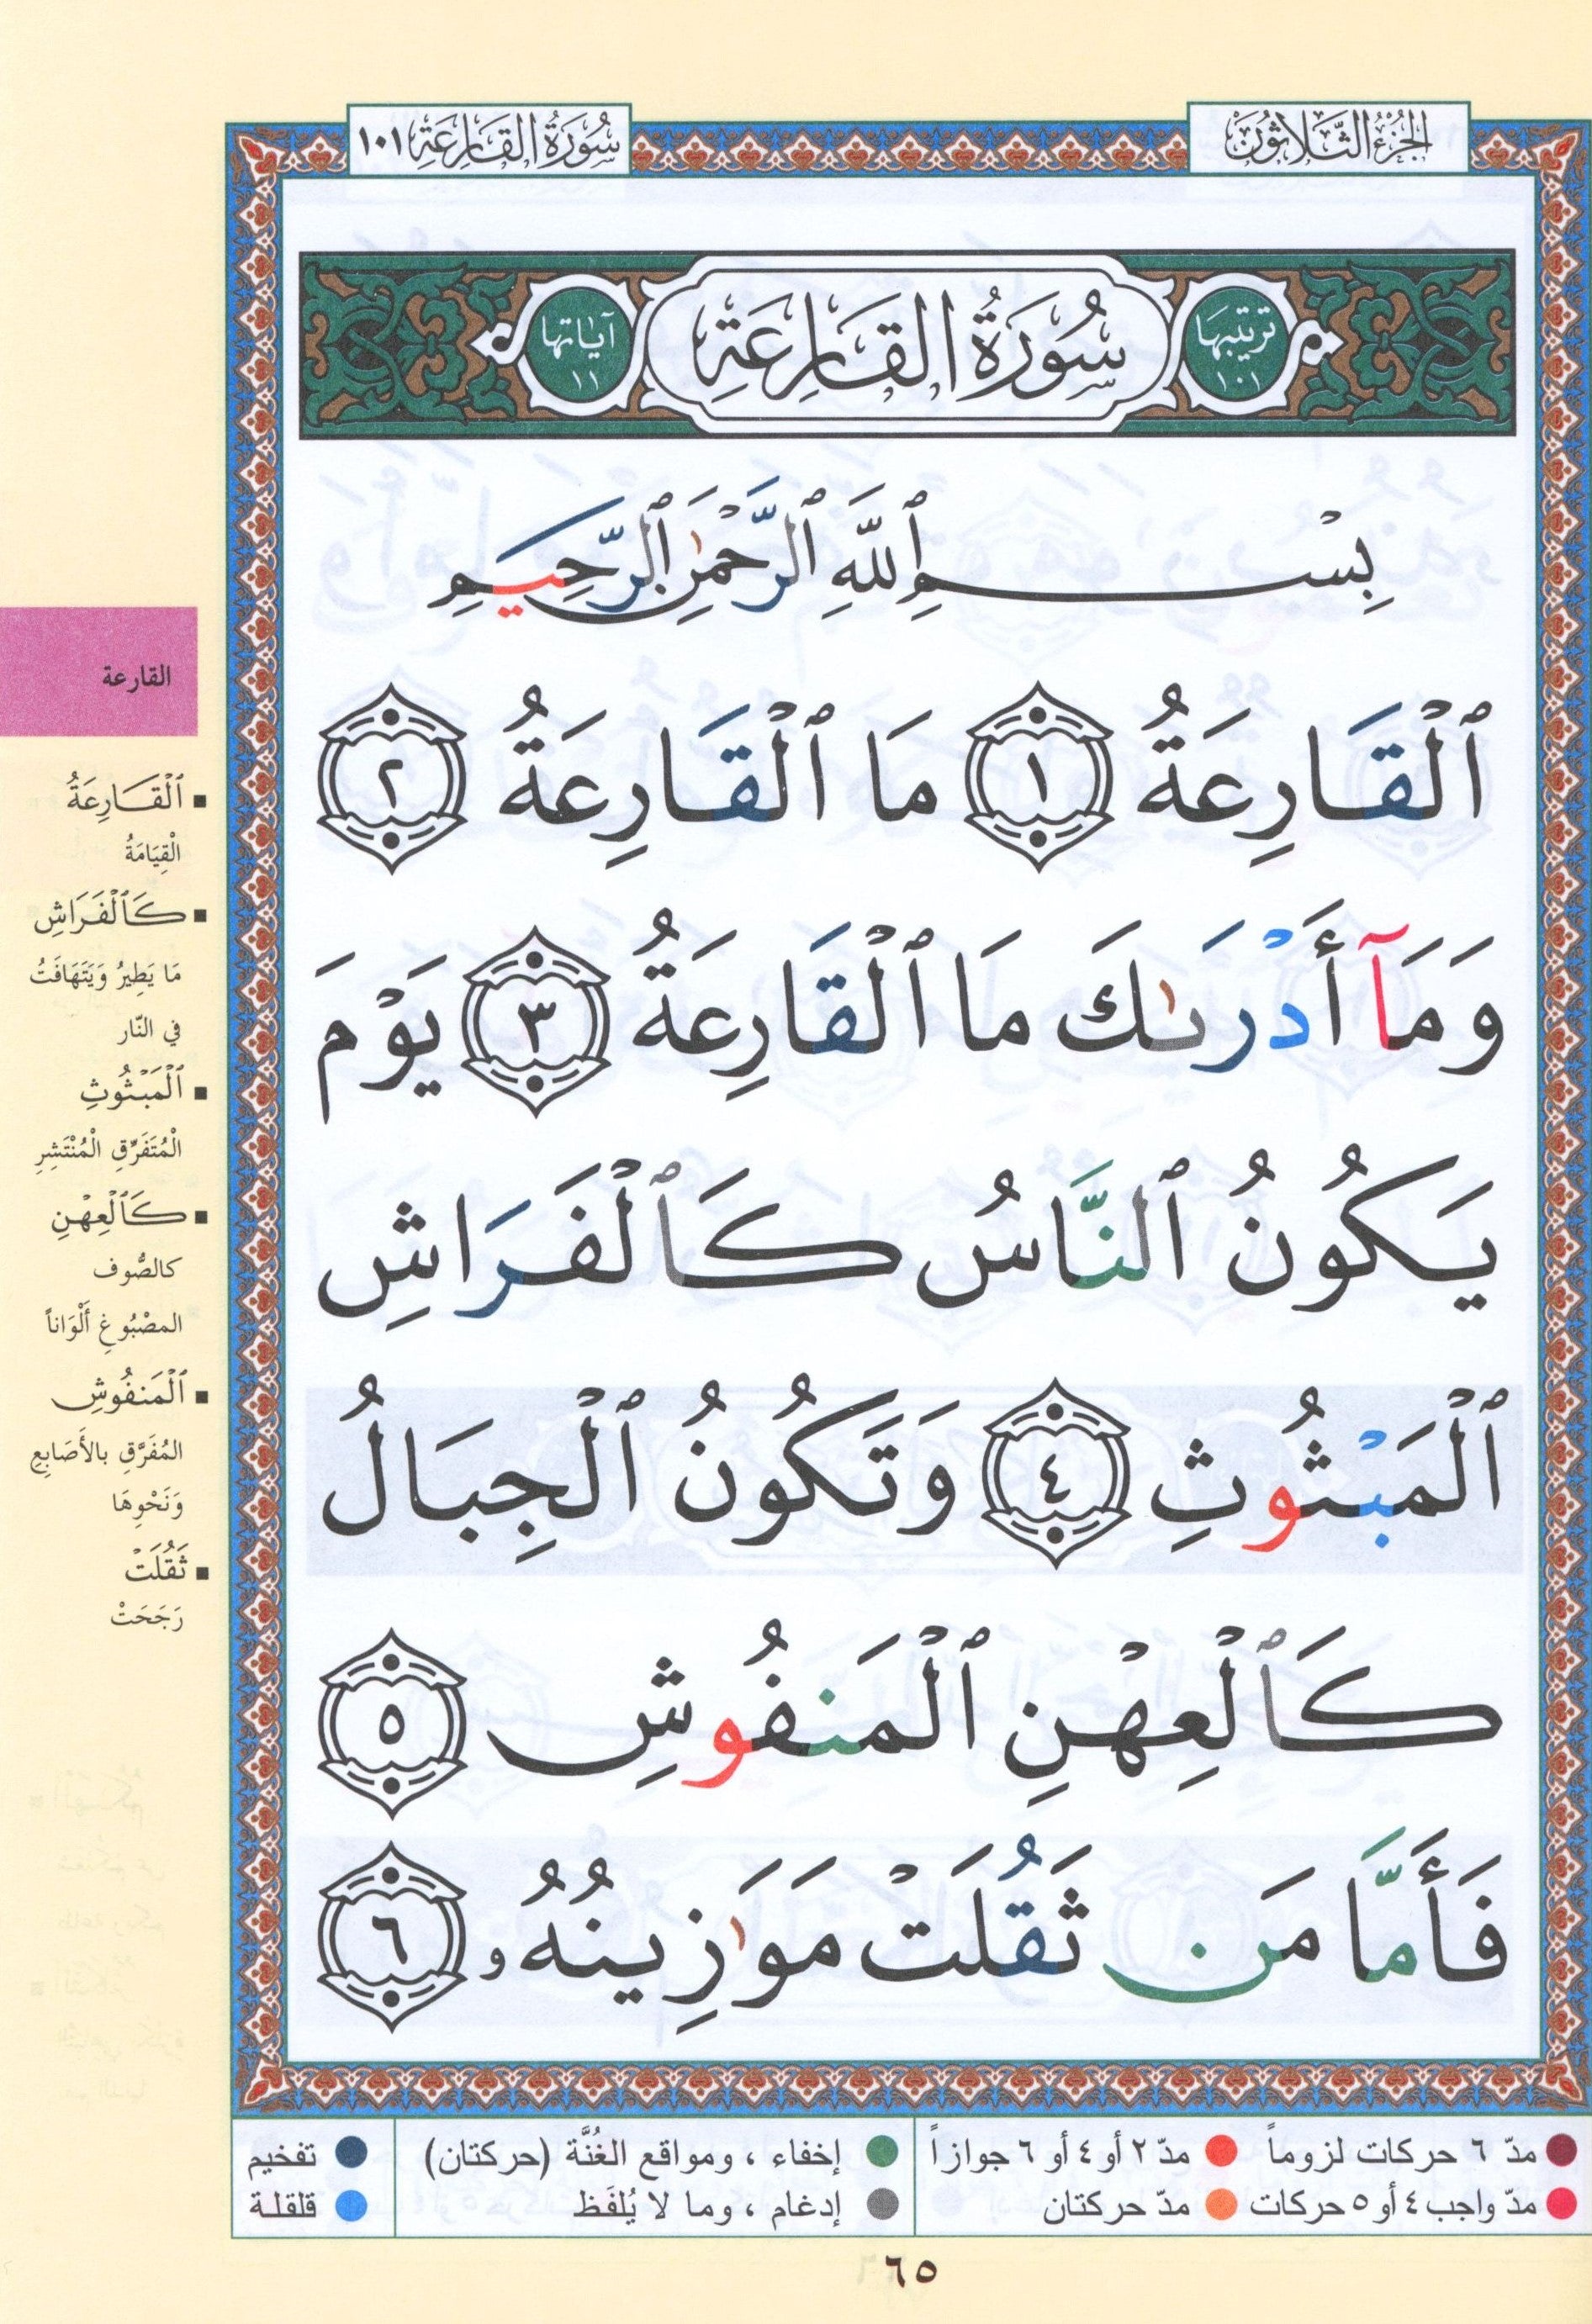 الجزء الثلاثون
سُورَةُ القَارِعَةِ ١٠١
ترتيبها ١٠١
سُورَةُ القَارِعَةِ
آياتها ١١
بِسْمِ ٱللَّهِ ٱلرَّحْمَٰنِ ٱلرَّحِيمِ
ٱلْقَارِعَةُ ١ مَا ٱلْقَارِعَةُ ٢
وَمَآ أَدْرَىٰكَ مَا ٱلْقَارِعَةُ ٣ يَوْمَ
يَكُونُ ٱلنَّاسُ كَٱلْفَرَاشِ
ٱلْمَبْثُوثِ ٤ وَتَكُونُ ٱلْجِبَالُ
كَٱلْعِهْنِ ٱلْمَنفُوشِ ٥
فَأَمَّا مَن ثَقُلَتْ مَوَٰزِينُهُۥ ٦
القارعة
▪ ٱلْقَارِعَةُ
الْقِيَامَةُ
▪ كَٱلْفَرَاشِ
مَا يَطِيرُ وَيَتَهَافَتُ
في النّار
▪ ٱلْمَبْثُوثِ
الْمُتَفَرِّقِ الْمُنْتَشِرِ
▪ كَٱلْعِهْنِ
كالصُّوف
المصْبُوغِ أَلْوَاناً
▪ ٱلْمَنفُوشِ
المُفَرَّقِ بالأَصَابِعِ
وَنَحْوِهَا
▪ ثَقُلَتْ
رَجَحَتْ
مدّ ٦ حركات لزوماً
مدّ ٢ أو ٤ أو ٦ جوازاً
إخفاء ، ومواقع الغُنَّة (حركتان)
تفخيم
مدّ واجب ٤ أو ٥ حركات
مدّ حركتان
إدغام ، وما لا يُلفَظ
قلقلة
٦٥